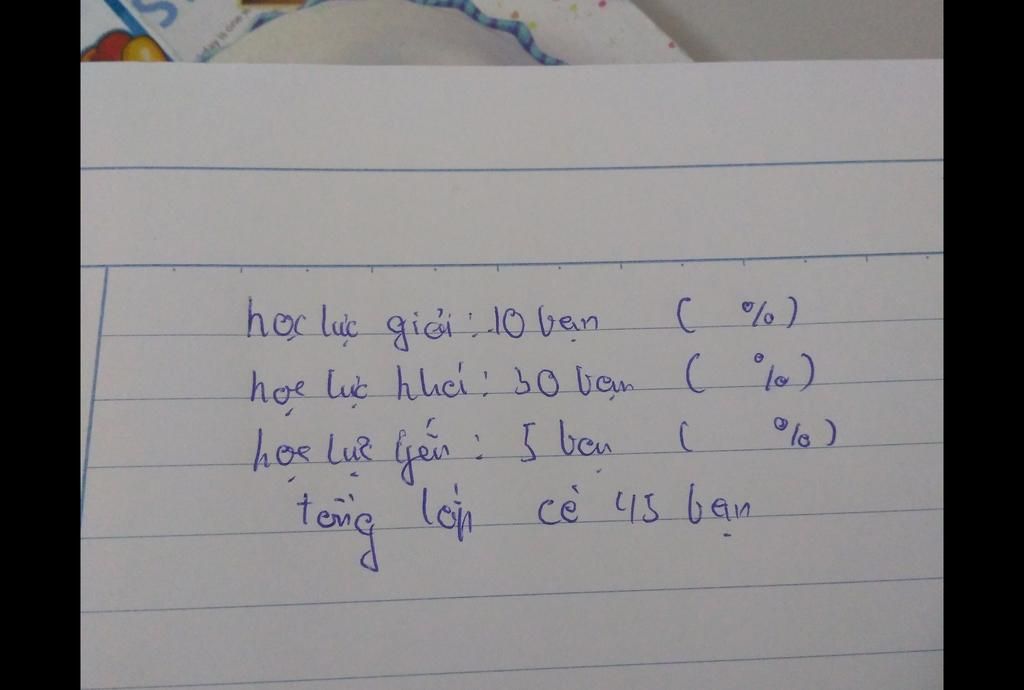 học lực giỏi : 10 bạn ( %)
học lực khá : 30 bạn ( %)
học lực yếu : 5 bạn ( %)
tổng lớp có 45 bạn